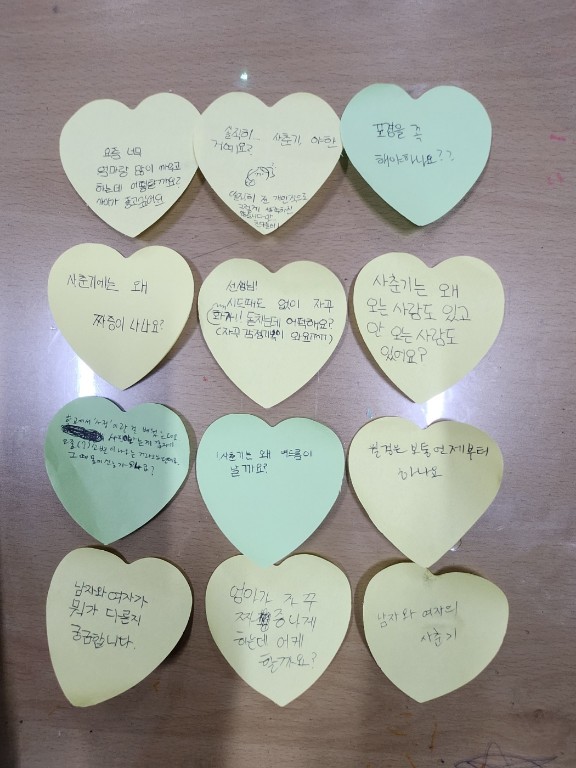 요즘 너무
엄마랑 많이 싸우고
하는데 어떡할까요?
솔직히... 사춘기, 야한
거예요?
솔직히 전 개인적으로
포경을 꼭
해야하나요??
사춘기에는 왜
짜증이 나나요?
선생님!
시도때도 없이 자꾸
화가나! 동치는데 어떡해요?
(자꾸 감정기복이 와요ㅠㅠ)
사춘기는 왜
오는 사람도 있고
안 오는 사람도
있어요?
학교에서 '사정'이란 걸 배웠는데요
사춘기는 왜 여드름이
날까요?
포경은 보통 언제부터
하나요
남자와 여자가
뭐가 다른지
궁금합니다.
엄마가 자꾸
짜증나게
하는데 어케
할까요?
남자와 여자의
사춘기